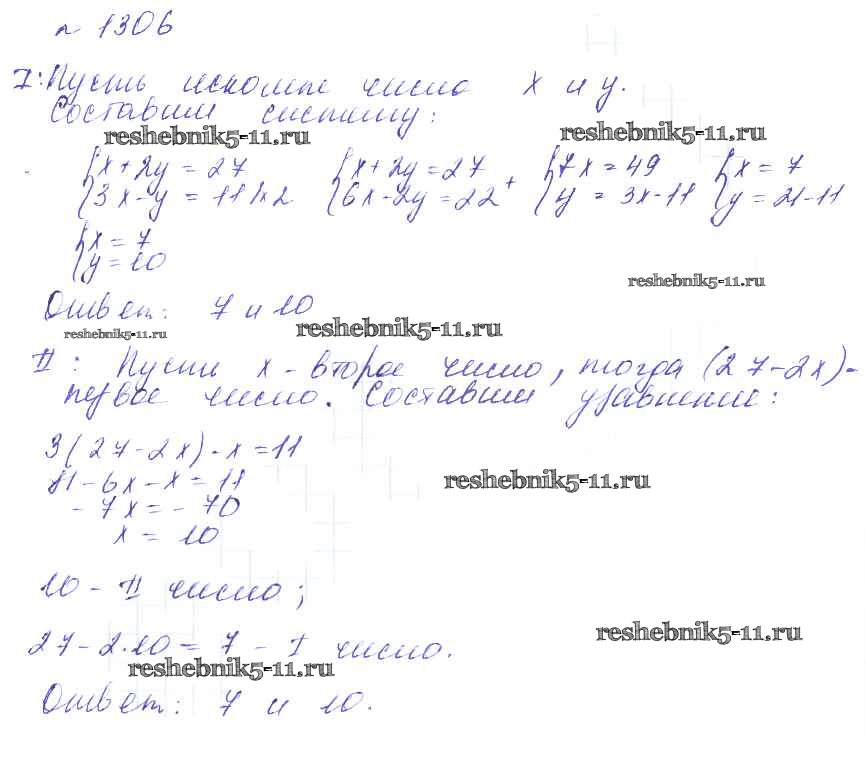 № 1306
I: Пусть искомые числа x и y.
Составим систему:
reshebnik5-11.ru reshebnik5-11.ru
{x + 2y = 27 {x + 2y = 27 + {7x = 49 {x = 7
{3x - y = 11 |×2 {6x - 2y = 22 {y = 3x - 11 {y = 21 - 11
{x = 7
{y = 10
reshebnik5-11.ru
Ответ: 7 и 10
reshebnik5-11.ru reshebnik5-11.ru
II: Пусть x - второе число, тогда (27 - 2x) -
первое число. Составим уравнение:
3(27 - 2x) - x = 11
81 - 6x - x = 11
reshebnik5-11.ru
- 7x = - 70
x = 10
10 - II число;
reshebnik5-11.ru
27 - 2·10 = 7 - I число.
reshebnik5-11.ru
Ответ: 7 и 10.